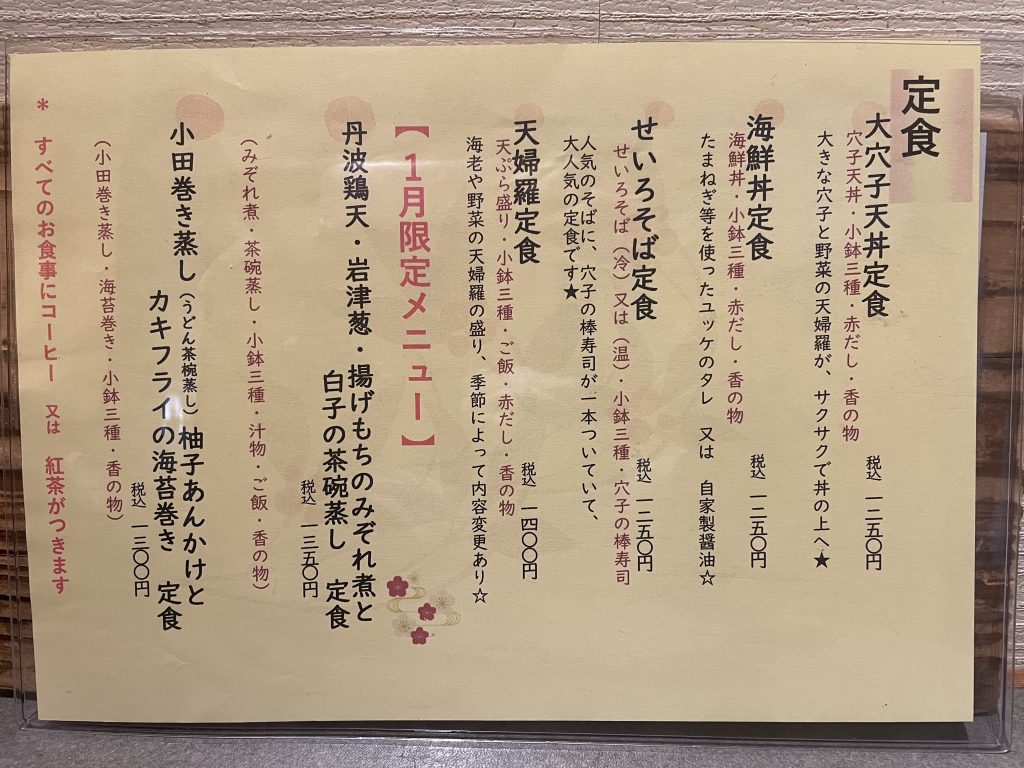 定食
大穴子天丼定食
穴子天丼・小鉢三種・赤だし・香の物
税込 一二五〇円
大きな穴子と野菜の天婦羅が、サクサクで丼の上へ★
海鮮丼定食
海鮮丼・小鉢三種・赤だし・香の物
税込 一二五〇円
たまねぎ等を使ったユッケのタレ 又は 自家製醤油☆
せいろそば定食
税込 一二五〇円
せいろそば（冷）又は（温）・小鉢三種・穴子の棒寿司
人気のそばに、穴子の棒寿司が一本ついていて、
大人気の定食です★
天婦羅定食
税込 一四〇〇円
天ぷら盛り・小鉢三種・ご飯・赤だし・香の物
海老や野菜の天婦羅の盛り、季節によって内容変更あり☆
【１月限定メニュー】
丹波鶏天・岩津葱・揚げもちのみぞれ煮と
白子の茶碗蒸し 定食
税込 一三五〇円
（みぞれ煮・茶碗蒸し・小鉢三種・汁物・ご飯・香の物）
小田巻き蒸し（うどん茶碗蒸し）柚子あんかけと
カキフライの海苔巻き 定食
税込 一三〇〇円
（小田巻き蒸し・海苔巻き・小鉢三種・香の物）
＊ すべてのお食事にコーヒー 又は 紅茶がつきます